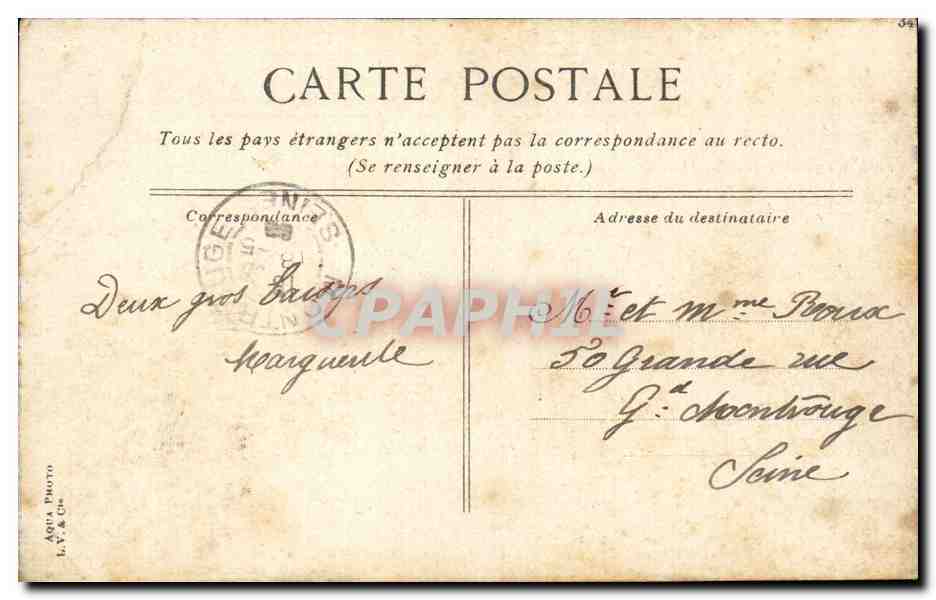 34
CARTE POSTALE
Tous les pays étrangers n'acceptent pas la correspondance au recto.
(Se renseigner à la poste.)
Correspondance
Adresse du destinataire
SEINE
MONTROUGE
Deux gros baisers
Marguerite
Mr. et Mme Roux
50 Grande rue
Gd. Montrouge
Seine
AQUA PHOTO
L. V. & Cie
CPAPHIL